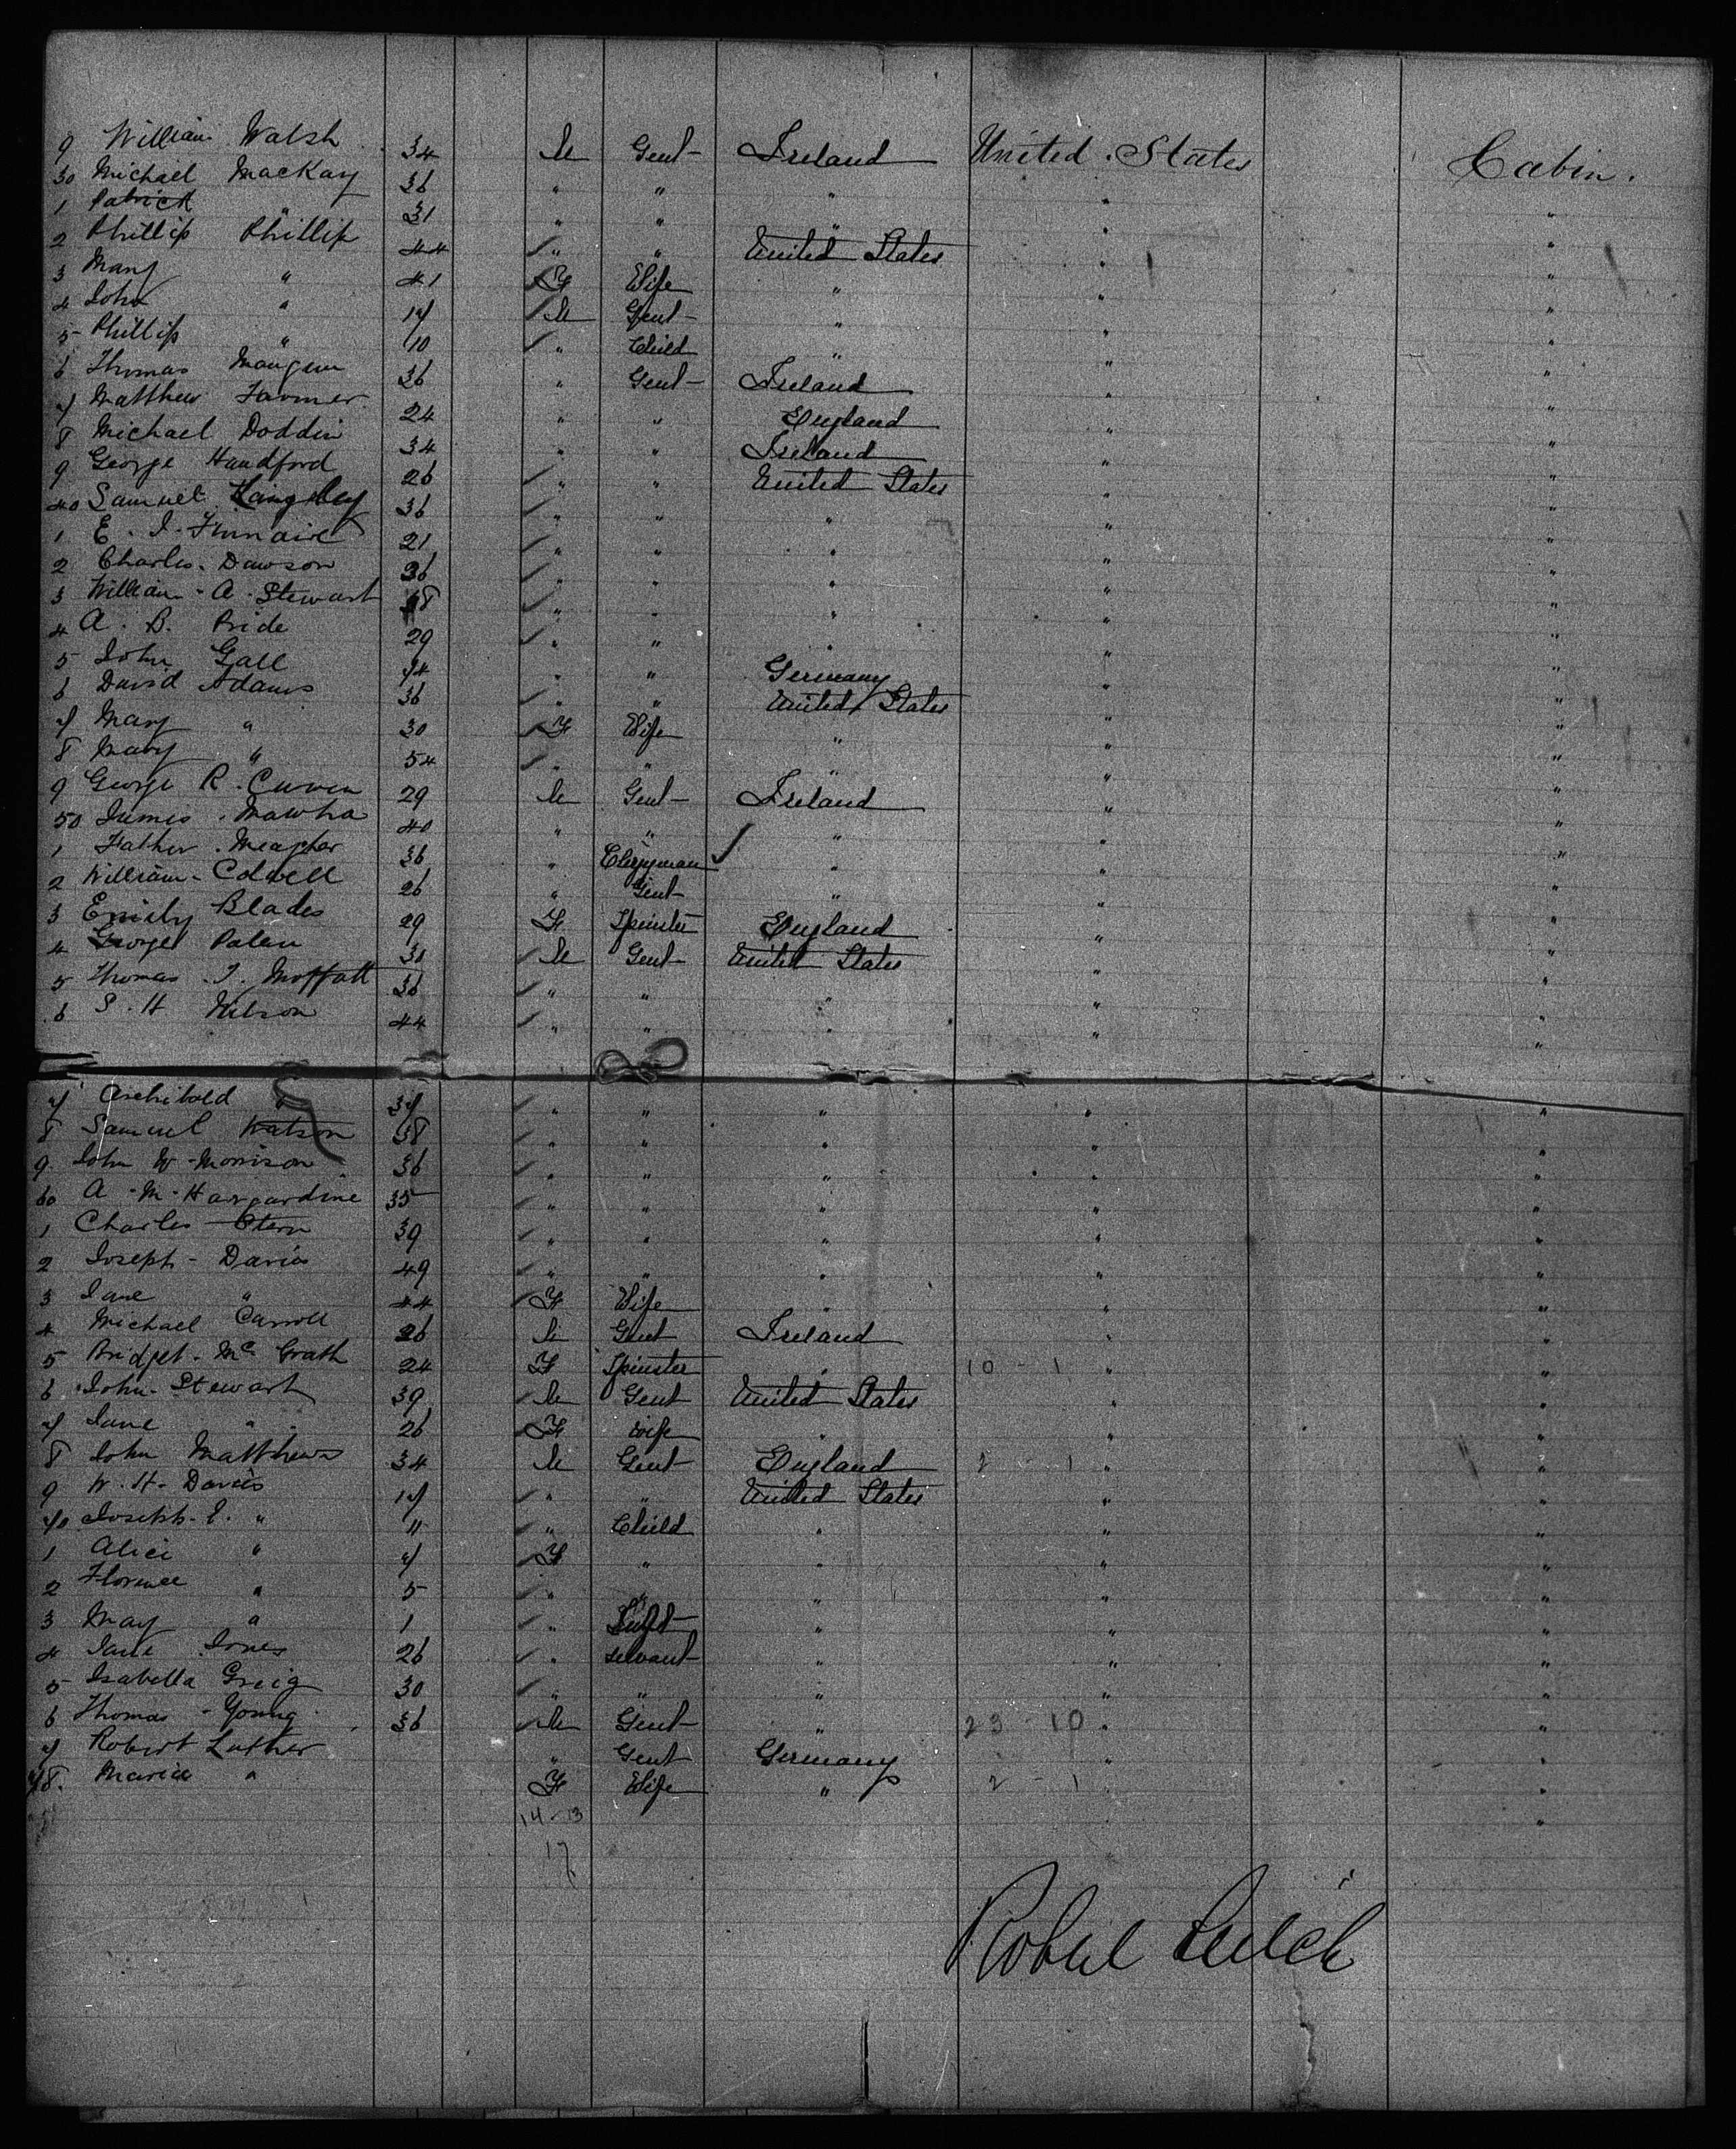 9 William Walsh 34 M Gent Ireland United States Cabin.
30 Michael MacKay 36 " " " " "
1 Patrick " 31 " " " " "
2 Phillip Phillip 44 " " United States " "
3 Mary " 41 F Wife " " "
4 John " 17 M Gent " " "
5 Phillip " 10 " Child " " "
6 Thomas Mangum 36 " Gent Ireland " "
7 Matthew Farmer 24 " " England " "
8 Michael Doddin 34 " " Ireland " "
9 George Handford 26 " " United States " "
40 Samuel Kingsley 36 " " " " "
1 E. I. 21 " " " " "
2 Charles Dawson 36 " " " " "
3 William A. Stewart 18 " " " " "
4 A. B. Pride 29 " " " " "
5 John Gall 74 " " Germany " "
6 David Adams 36 " " United States " "
7 Mary " 30 F Wife " " "
8 Mary " 54 " " " " "
9 George R. Curven 29 M Gent Ireland " "
50 James Mawha 40 " " " " "
1 Father Meagher 36 " Clergyman " " "
2 William Colwell 26 " Gent " " "
3 Emily Blades 29 F Spinster England " "
4 George Palen 30 M Gent United States " "
5 Thomas I. Moffatt 36 " " " " "
6 S. H Wilson 44 " " " " "
7 Archibald " 37 " " " " "
8 Samuel Watson 38 " " " " "
9 John W Morrison 36 " " " " "
60 A. M. Hargardine 35 " " " " "
1 Charles Stern 39 " " " " "
2 Joseph Davies 49 " " " " "
3 Jane " 44 F Wife " " "
4 Michael Carroll 26 M Gent Ireland " "
5 Bridget Mc Grath 24 F Spinster " 10 - 1 " "
6 John Stewart 39 M Gent United States " "
7 Jane " 26 F Wife " " "
8 John Matthews 34 M Gent England 2 - 1 " "
9 W. H. Davies 17 " " United States " "
70 Joseph E. " 11 " Child " " "
1 Alice " 7 F " " " "
2 Florence " 5 " " " " "
3 May " 1 " Infft " " "
4 Jane Jones 26 " Servant " " "
5 Isabella Greig 30 " " " " "
6 Thomas Young 36 M Gent " 23 - 10 " "
7 Robert Luther " Gent Germany " "
78. Maria " F Wife " 2 - 1 " "
14 - 3
17
Robert Leitch